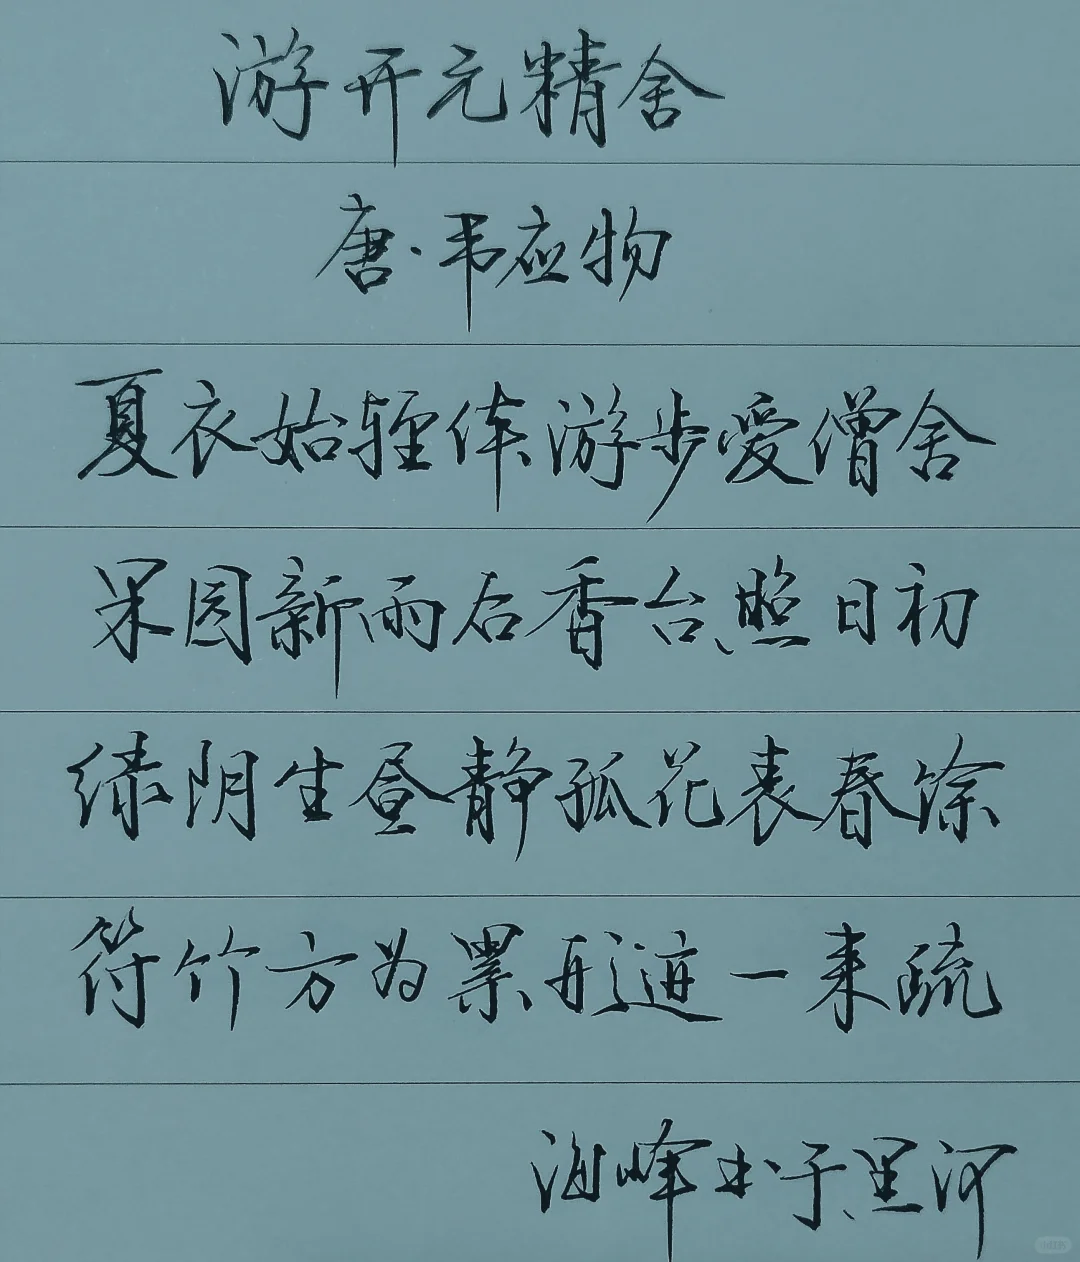 游开元精舍
唐·韦应物
夏衣始轻体游步爱僧舍
果园新雨后香台照日初
绿阴生昼静孤花表春馀
符竹方为累形迹一来疏
海峰书于黑河